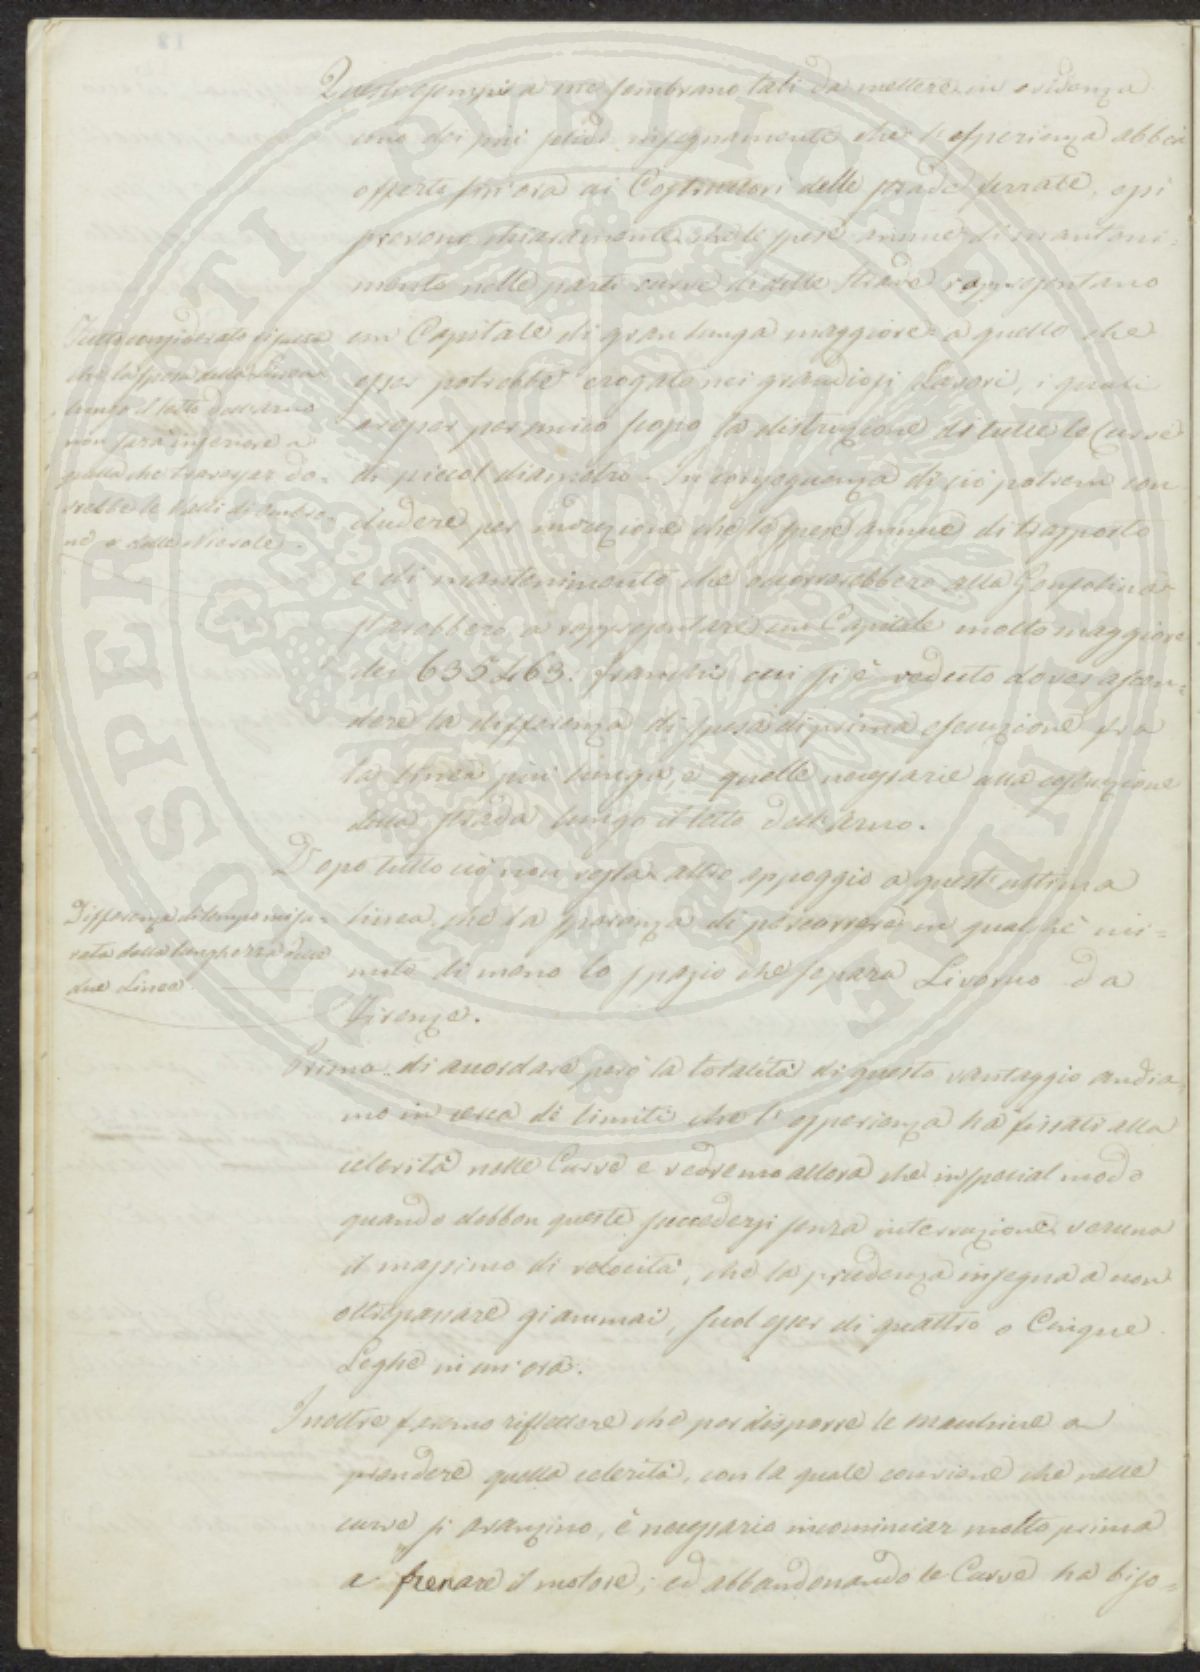 Questi esempi a me sembrano tali da mettere in evidenza
uno dei più solidi insegnamenti che l'esperienza abbia
offerto fin'ora ai Costruttori delle strade ferrate, essi
provono chiaramente che le spese annue di manteni=
mento nelle parti curve di dette strade rappresentano
un Capitale di gran lunga maggiore a quello che
esser potrebbe erogato nei grandiosi Lavori, i quali
avesser per unico scopo la distruzione di tutte le Curve
di piccol diametro. In conseguenza di ciò potrem con
cludere per induzione che le spese annue di trasporto
e di mantenimento che occorrerebbero alla Gonfolina
starebbero a rappresentare un Capitale molto maggiore
dei 635463. franchi cui si è veduto dover ascen=
dere la differenza di spesa di prima esecuzione fra
la linea più lunga, e quelle necessarie alla costruzione
della strada lungo il letto dell'Arno.
Tutto considerato risulta
che la spesa della Linea
lungo il letto dell'Arno
non sarà inferiore a
quella che traversar do=
vrebbe le Valli di Ombro=
ne e delle Nievole.
Dopo tutto ciò non resta altro appoggio a quest'ultima
linea, che la speranza di percorrere in qualche mi=
nuto di meno lo spazio che separa Livorno da
Firenze.
Differenza di tempo misu=
rata dalla lunghezza delle
due Linee.
Prima di accordare però la totalità di questo vantaggio andia
mo in cerca de limiti che l'esperienza ha fissati alla
celerità nelle Curve e vedremo allora che in special modo
quando debbon queste succedersi senza interruzione veruna
il massimo di velocità, che la prudenza insegna a non
oltrepassare giammai, suol esser di quattro o Cinque
Leghe in un'ora.
Inoltre faremo riflettere che per disporre le macchine a
prendere quella celerità, con la quale conviene che nelle
curve si avanzino, è necessario incominciar molto prima
a frenare il motore; ed abbandonando le Curve ha biso=